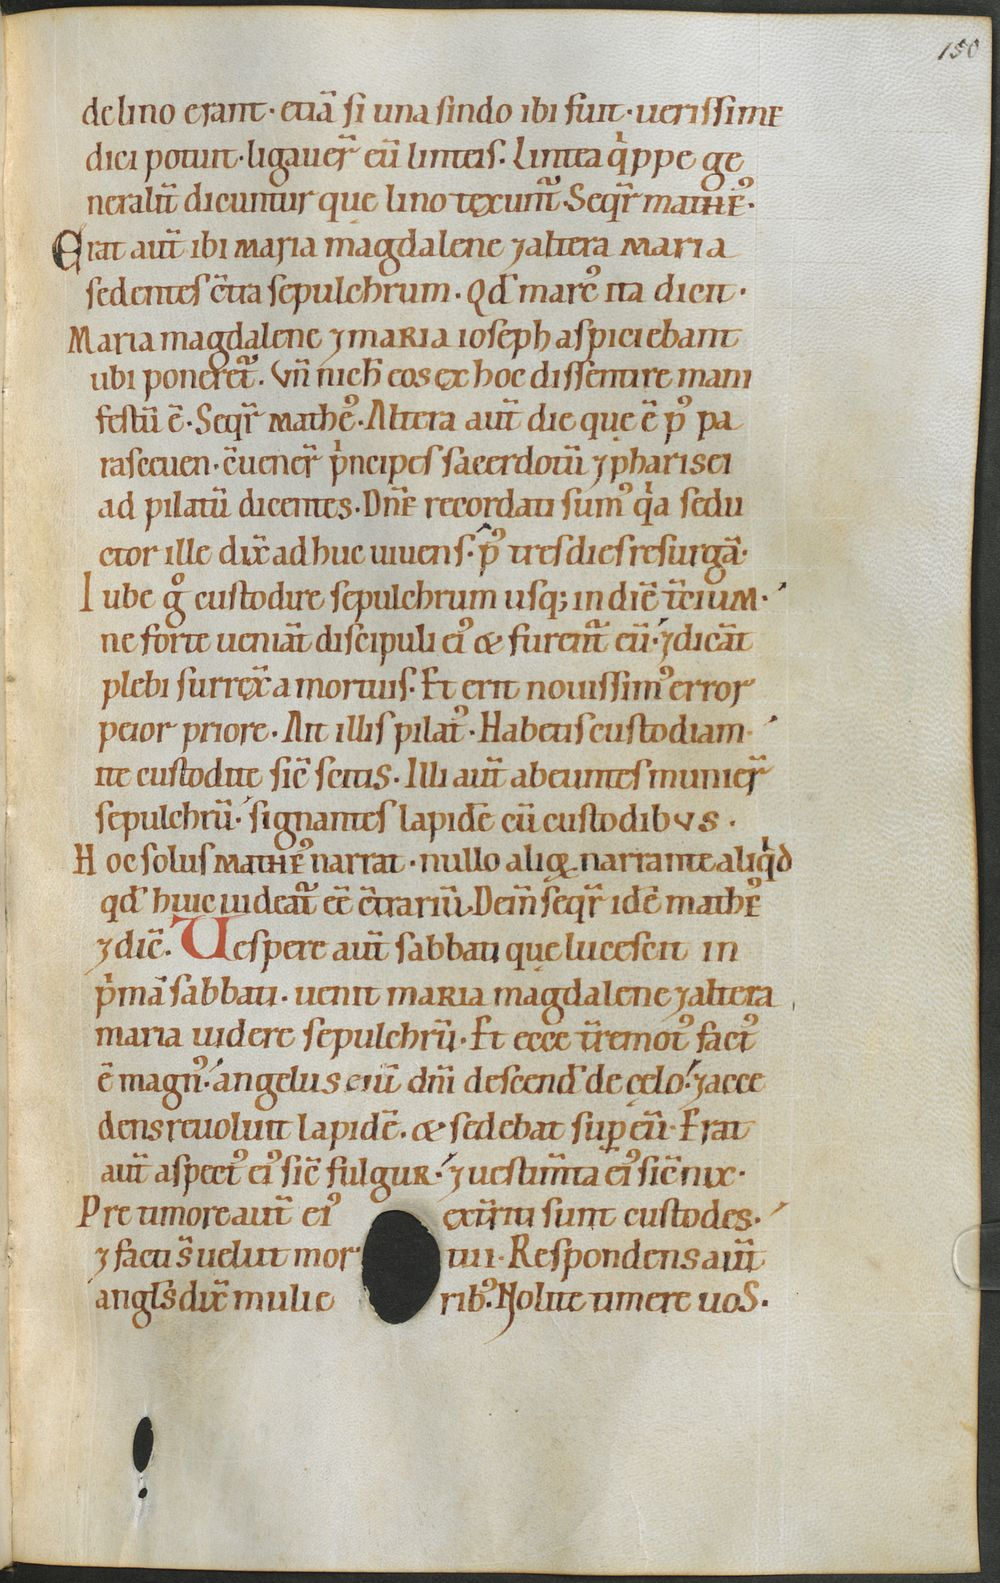 150
de lino erant· etiā si una sindo ibi fuit· uerissime
dici potuit· ligauer̄ eū linteis. Lintea q̍ppe ge
neralit̄ dicuntur que lino texunt᷑. Seqr̄ mathꝰ·
Erat aut̄ ibi maria magdalene ⁊ altera maria
sedentes c̄tra sepulchrum. Qđ marcꝰ ita dicit·
Maria magdalene ⁊ maria ioseph aspiciebant
ubi poneret᷑. Vn̄ nich̄ eos ex hoc dissentire mani
festū ē. Seqr̄ mathꝰ. Altera aut̄ die que ē pꝰ pa
rasceuen· c̄uener̄ p̍ncipes sacerdotū ⁊ pharisei
ad pilatū dicentes. Dn̄e recordati sumꝰ q̍a sedu
ctor ille dix̄ adhuc uiuens· pꝰ tres dies resurgā·
Iube gͦ custodire sepulchrum usq; in diē t̄cium·
ne forte ueniāt discipuli eiꝰ & furent᷑ eū· ⁊ dicāt
plebi surrex̄ a mortuis. Et erit nouissimꝰ error
peior priore. Ait illis pilatꝰ. Habetis custodiam·
ite custodite sic̄ scitis. Illi aut̄ abeuntes munier̄
sepulchrū· signantes lapidē cū custodibus.
Hoc solus mathꝰ narrat· nullo aliꝗ narrante aliq̍d
qđ huic uideat᷑ eē c̄trariū. Dein̄ seqr̄ idē mathꝰ
⁊ dic̄. Vespere aut̄ sabbati que lucescit in
p̍mā sabbati· uenit maria magdalene ⁊ altera
maria uidere sepulchrū. Et ecce t̄remotꝰ factꝰ
ē magnꝰ· angelus eni̅ dn̄i descend̄ de celo· ⁊ acce
dens reuoluit lapidē. & sedebat sup̱ eū· Erat
aut̄ aspectꝰ eiꝰ sic̄ fulgur· ⁊ uestim̄ta eiꝰ sic̄ nix·
Pre timore aut̄ eiꝰ ext̄riti sunt custodes·
⁊ facti s̄ uelut mortui· Respondens aut̄
angl̄s dix̄ mulieribꝰ. Nolite timere uos.